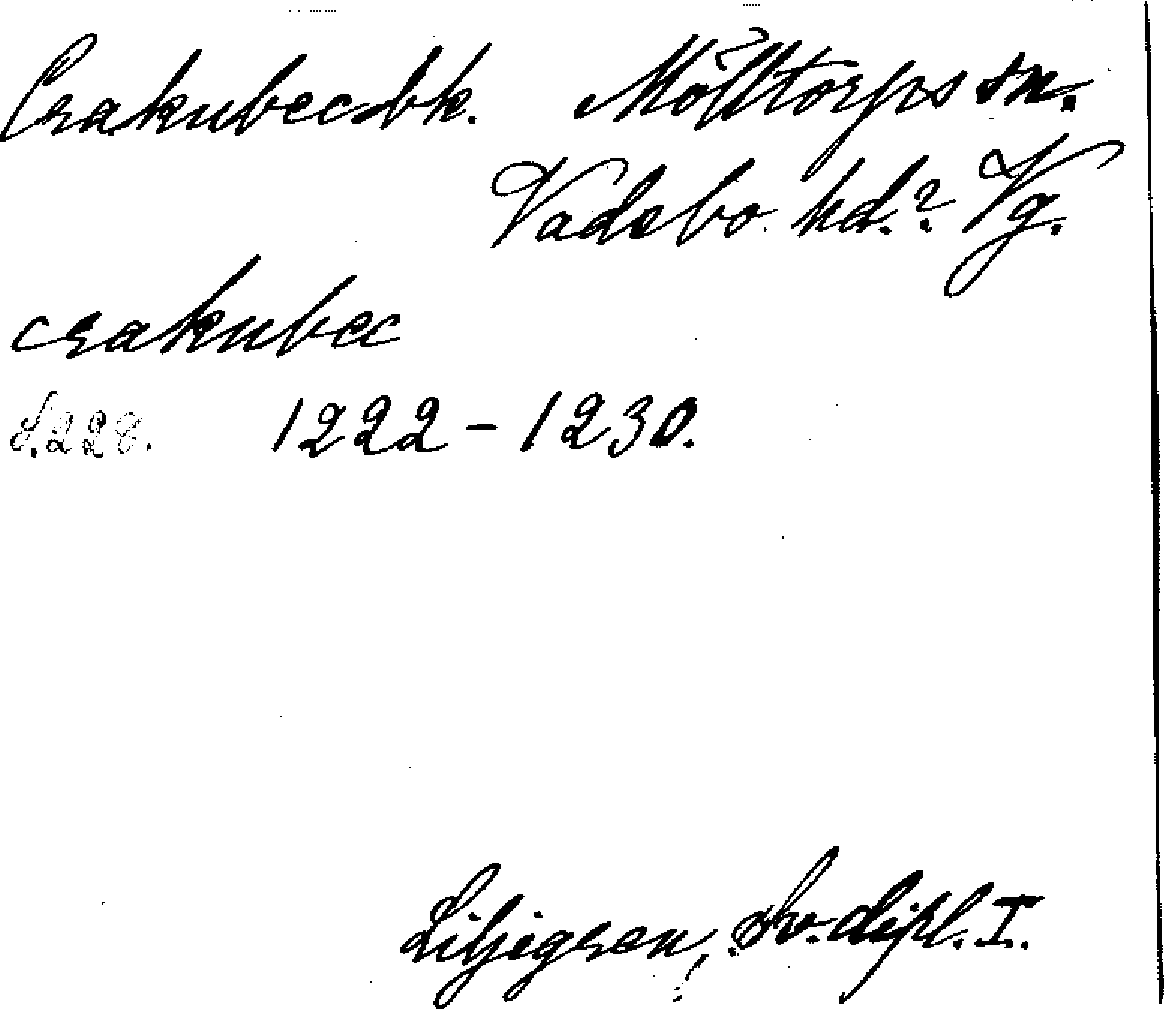 Crakubec bk. Mölltorps sn.
Vadsbo hd.? Vg.
crakubec
S. 228. 1222-1230.
Liljegren, Sv. dipl. I.